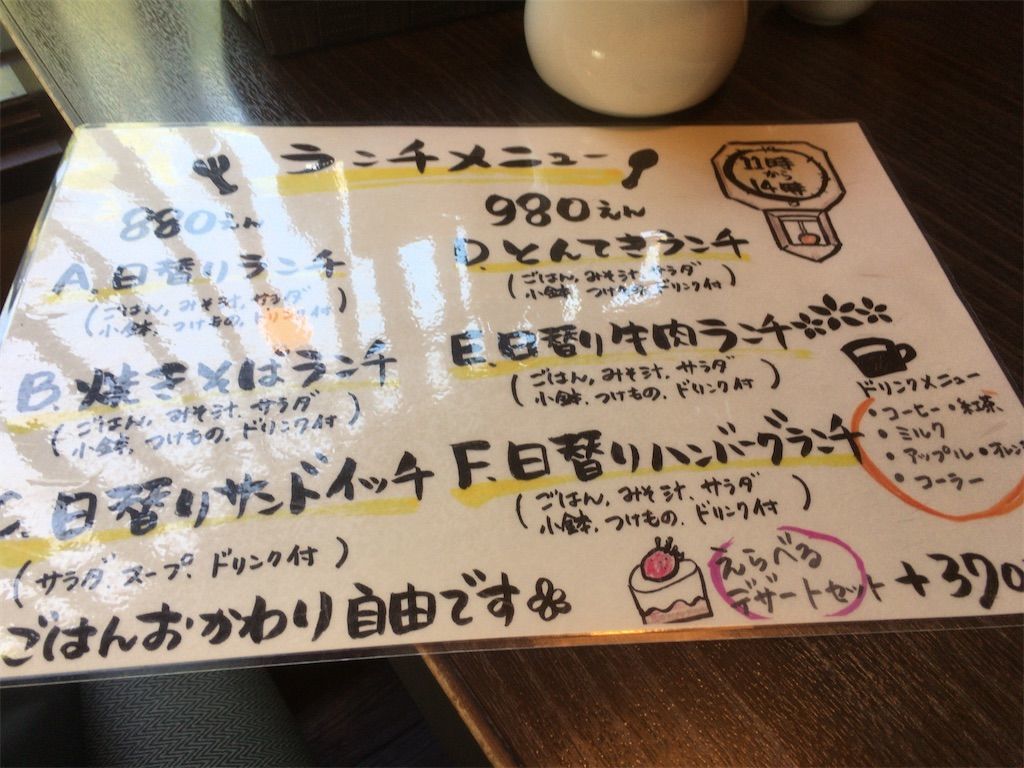 ランチメニュー
11時
から
14時
880えん
A.日替りランチ
(ごはん,みそ汁,サラダ
小鉢,つけもの,ドリンク付)
B.焼きそばランチ
(ごはん,みそ汁,サラダ
小鉢,つけもの,ドリンク付)
C.日替りサンドイッチ
(サラダ,スープ,ドリンク付)
980えん
D.とんてきランチ
(ごはん,みそ汁,サラダ
小鉢,つけもの,ドリンク付)
E.日替り牛肉ランチ
(ごはん,みそ汁,サラダ
小鉢,つけもの,ドリンク付)
F.日替りハンバーグランチ
(ごはん,みそ汁,サラダ
小鉢,つけもの,ドリンク付)
ドリンクメニュー
・コーヒー・紅茶
・ミルク
・アップル・オレン
・コーラー
えらべる
デザートセット +370
ごはんおかわり自由です